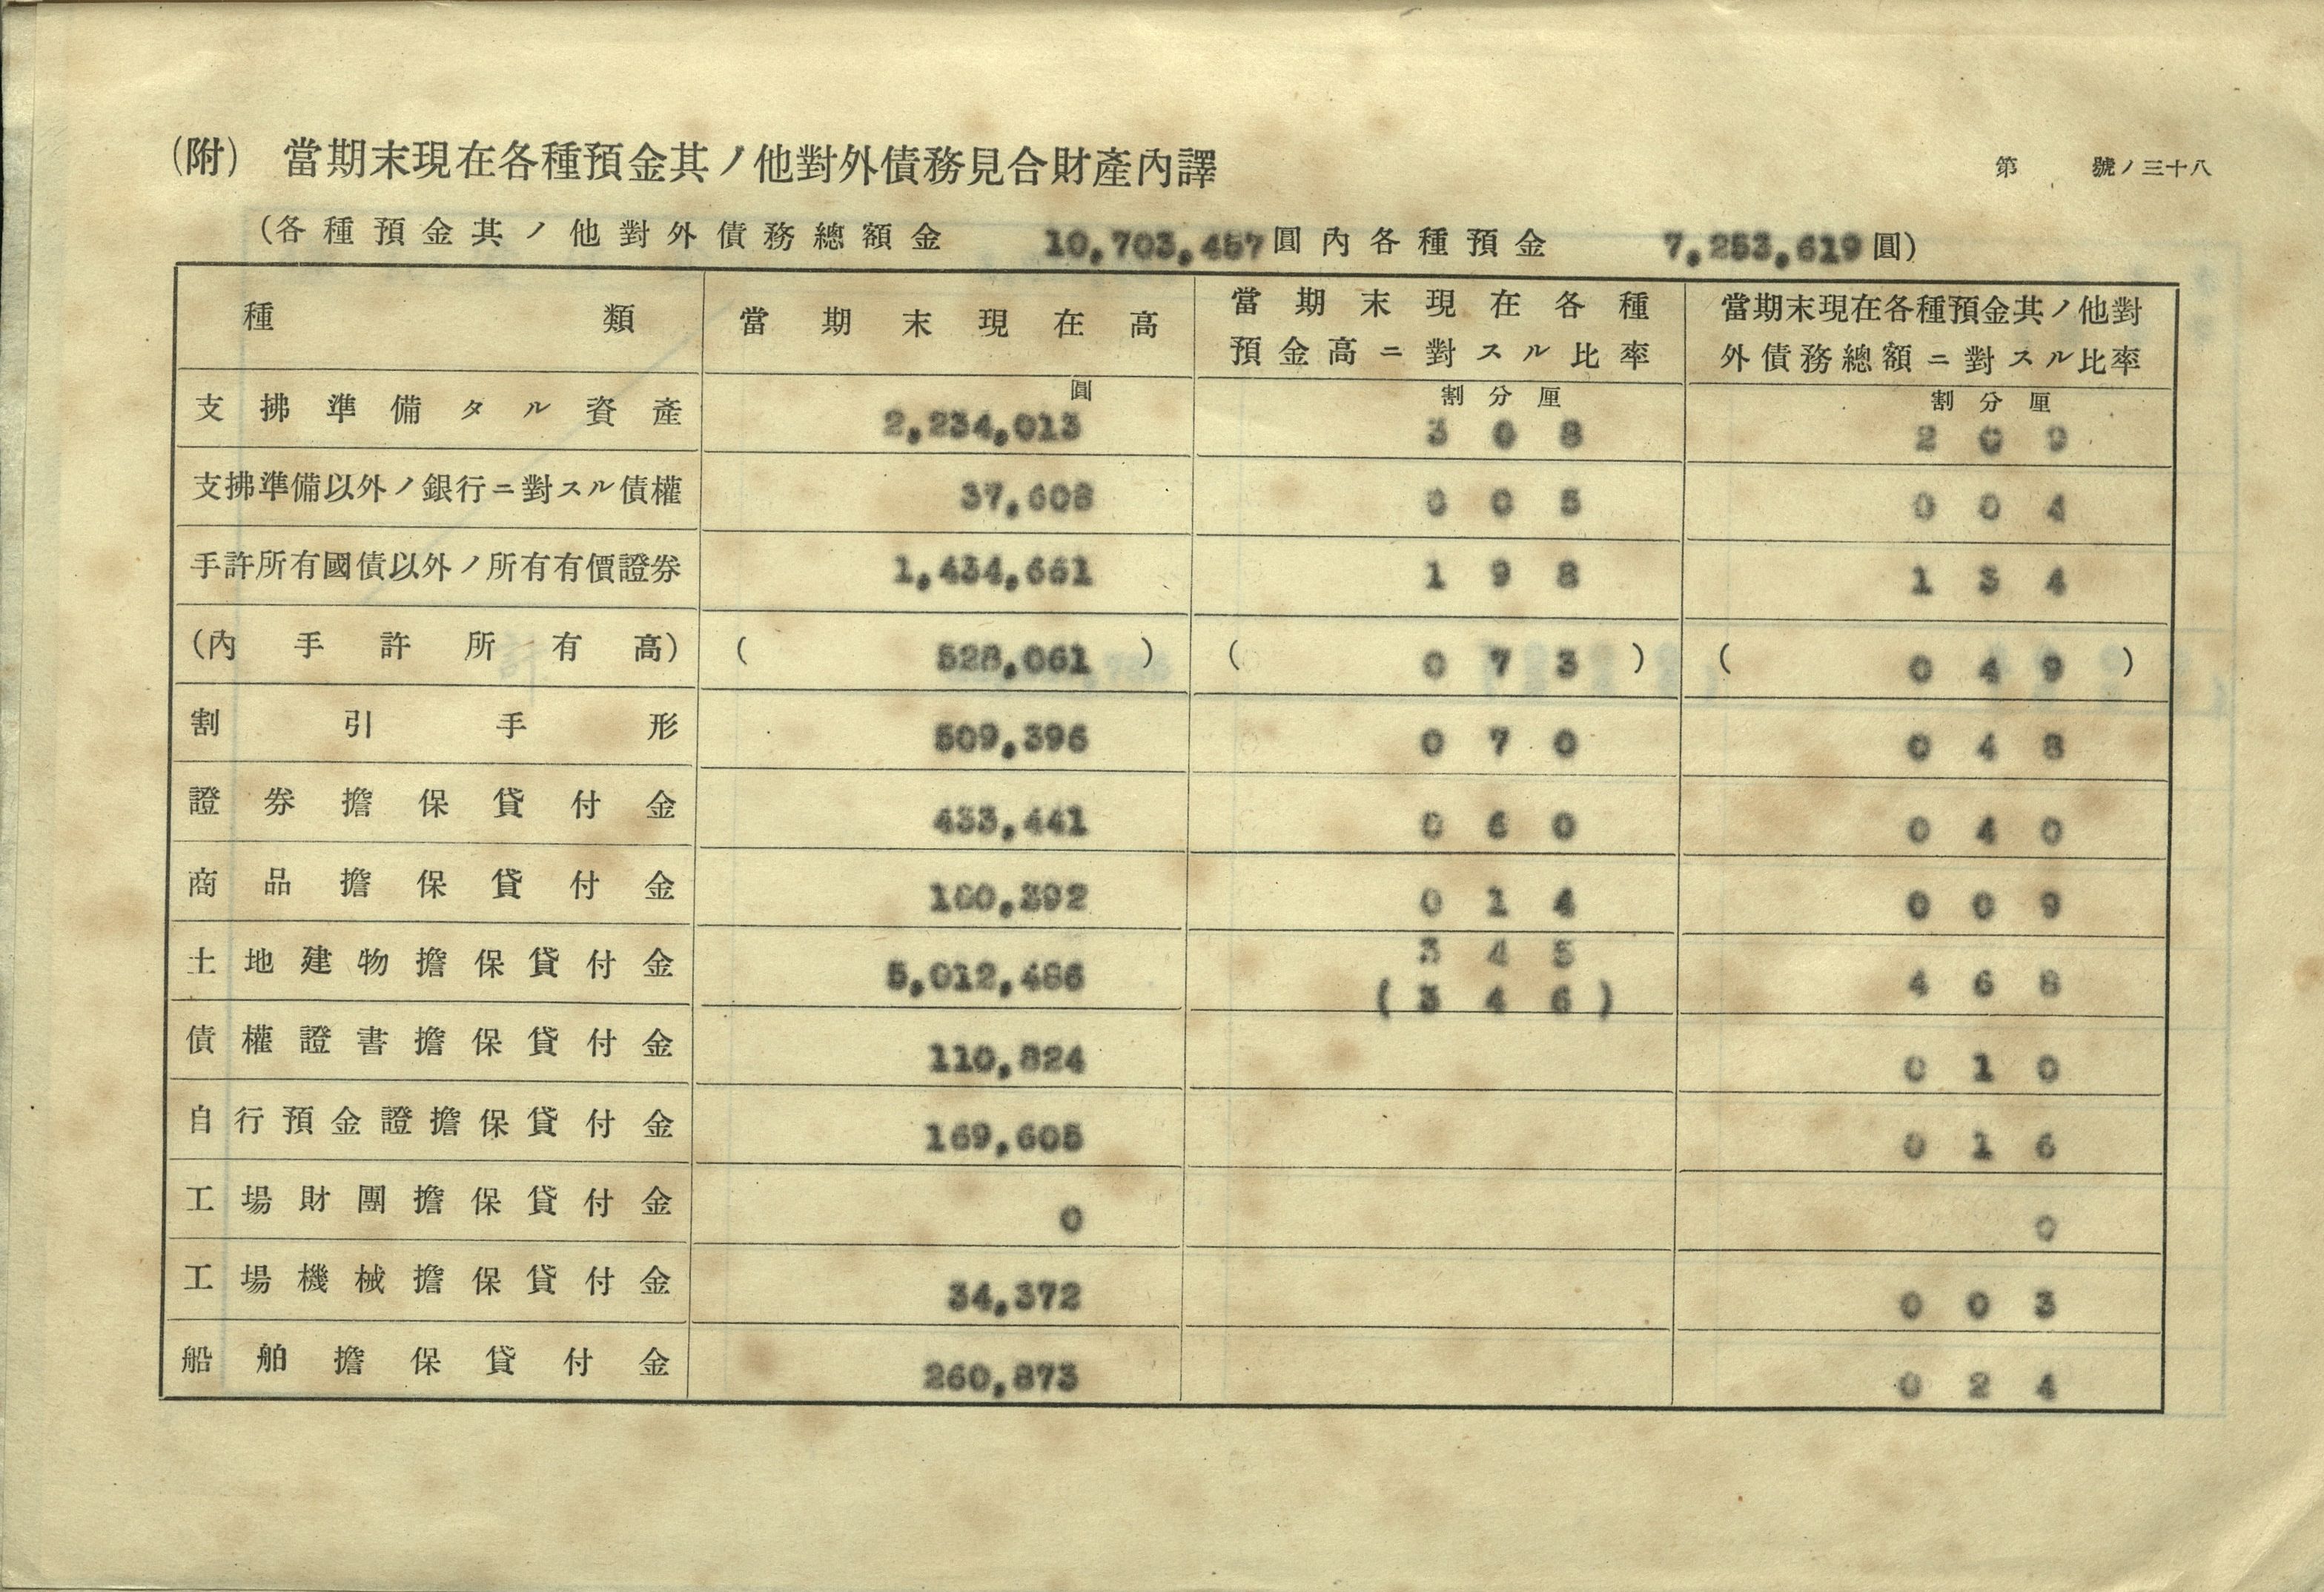 (附) 當期末現在各種預金其ノ他對外債務見合財產內譯
第 號ノ三十八
(各種預金其ノ他對外債務總額金 10,703,457圓內各種預金 7,253,619圓)
種類 當期末現在高 當期末現在各種預金高ニ對スル比率 當期末現在各種預金其ノ他對外債務總額ニ對スル比率
圓 割分厘 割分厘
支拂準備タル資產 2,234,013 3 0 8 2 0 9
支拂準備以外ノ銀行ニ對スル債權 37,608 0 0 5 0 0 4
手許所有國債以外ノ所有有價證券 1,434,661 1 9 8 1 3 4
(內手許所有高) ( 528,061 ) ( 0 7 3 ) ( 0 4 9 )
割引手形 509,396 0 7 0 0 4 8
證券擔保貸付金 433,441 0 6 0 0 4 0
商品擔保貸付金 100,392 0 1 4 0 0 9
土地建物擔保貸付金 5,012,486 3 4 5 (3 4 6) 4 6 8
債權證書擔保貸付金 110,824 0 1 0
自行預金證擔保貸付金 169,605 0 1 6
工場財團擔保貸付金 0 0
工場機械擔保貸付金 34,372 0 0 3
船舶擔保貸付金 260,873 0 2 4